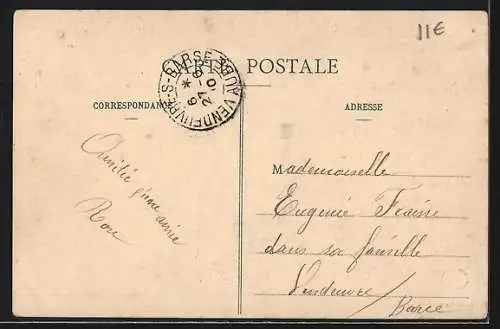 11€
CARTE POSTALE
VENDEUVRE-S-BARSE AUBE
6 *
27 -9
10
CORRESPONDANCE
ADRESSE
Amitié
d'une amie
Rose
Mademoiselle
Eugenie
dans sa famille
Vendeuvre / Barse